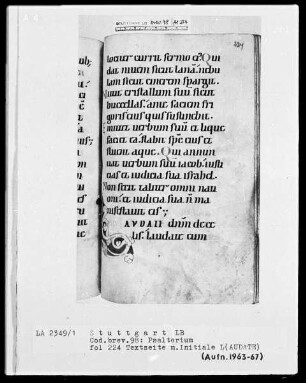 lociter currit sermo ei⁹ Qui
dat nivem sicut lanā nebu
lam sicut cinerem spargit
sicut cristallum suū sicut
buccellas ante faciem fri
goris eius quis sustinebit
verbum suū et lique
faciet ea flabit spc̄ eius et
fluent aque Qui annun
verbum suū iacob iusti
as et iudicia sua israhel
Non fecit taliter omni nati
oni et iudicia sua n̄ ma
nifestavit eis
AUDATE dn̄m de ce
lis laudate eum
LA 2349/1 Stuttgart LB
Cod.brev.98: Psalterium
fol 224 Textseite m.Initiale L(AUDATE)
(Aufn.1963-67)